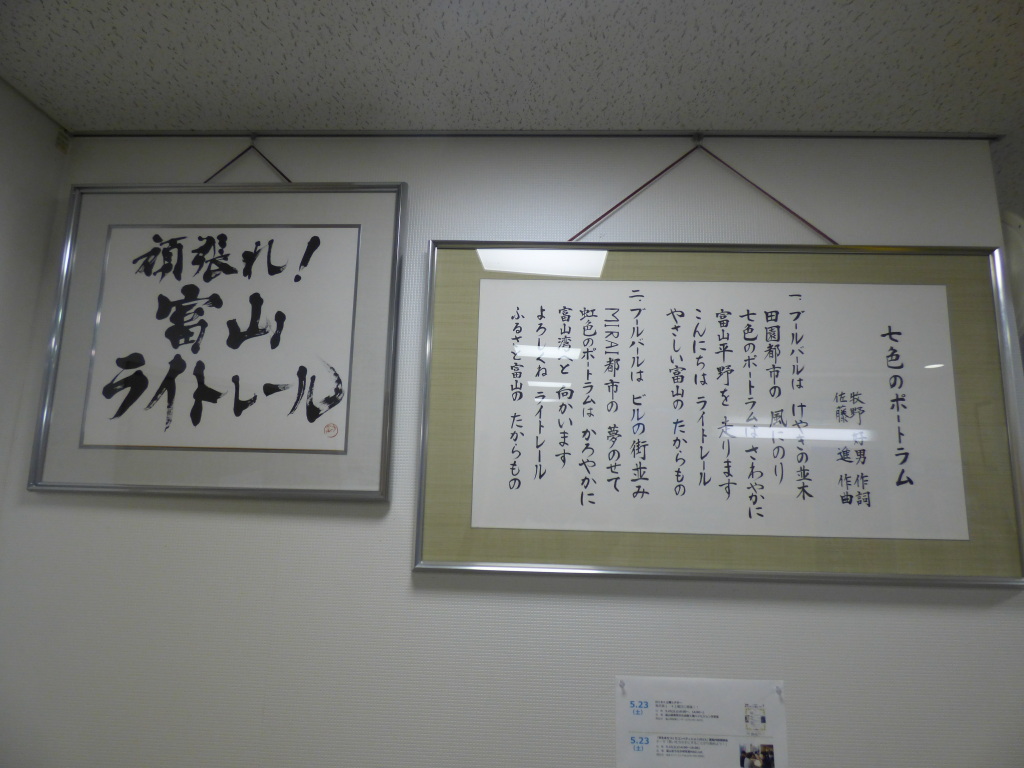 頑張れ!
富山
ライトレール
七色のポートラム
牧野 好男 作詞
佐藤 進 作曲
一、ブールバールは けやきの並木
田園都市の 風にのり
七色のポートラムは さわやかに
富山平野を 走ります
こんにちは ライトレール
やさしい富山の たからもの
二、ブールバールは ビルの街並み
MIRAI都市の 夢のせて
虹色のポートラムは かろやかに
富山湾へと 向かいます
よろしくね ライトレール
ふるさと富山の たからもの
5.23
(土)
5.23
(土)